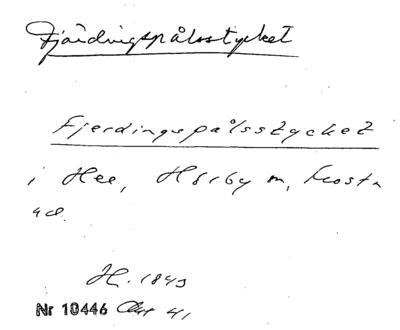 Fjärdingspålsstycket
Fjerdingspålsstycket
i Hee, Hörby m, Frosta
hd.
H. 1843
Nr 10446 Akt 41